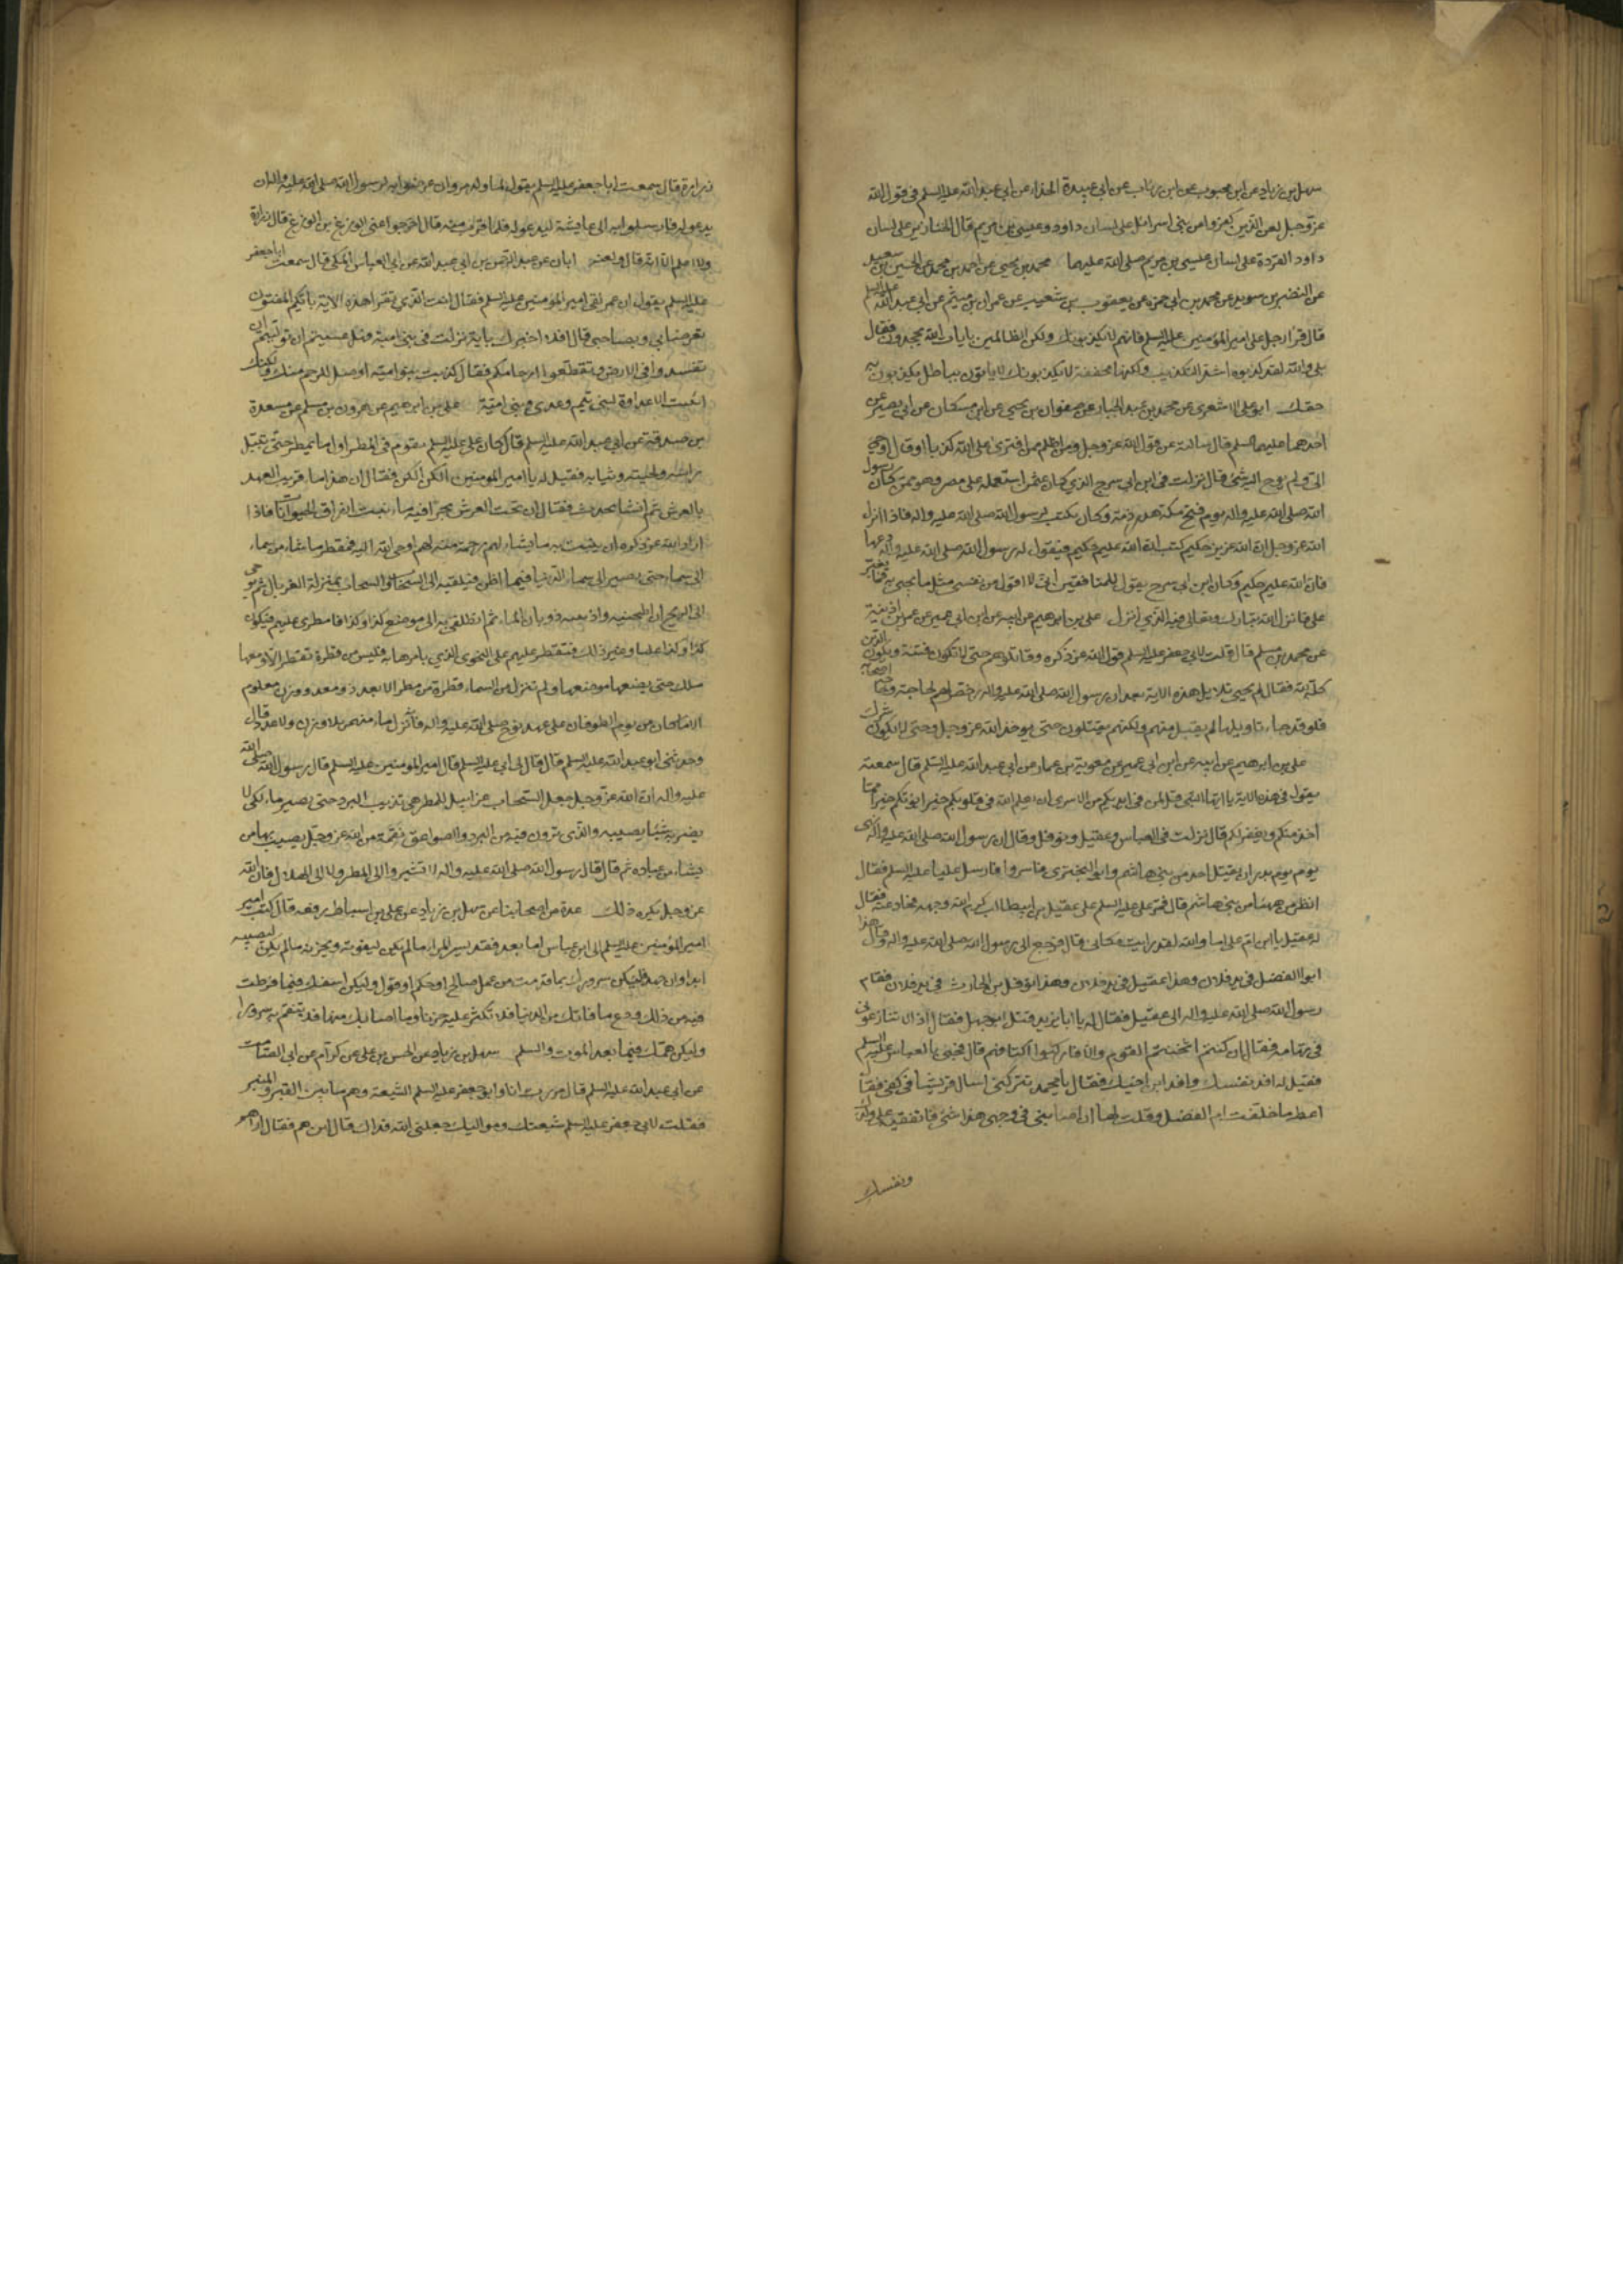 سهل بن زياد عن ابن محبوب عن ابن رياب عن ابي عبيدة الحذاء عن ابي عبد الله عليه السلم في قول الله
عز وجل لعن الذين كفروا من بني اسرائيل على لسان داود وعيسى بن مريم قال الخنازير على لسان
داود القردة على لسان عيسى بن مريم صلى الله عليهما محمد بن يحيى عن احمد بن محمد عن الحسين بن سعيد
عن النضر بن سويد عن محمد بن ابي حمزة عن يعقوب بن شعيب عن عمران بن ميثم عن ابي عبد الله عليه السلم
قال قرا رجل على امير المؤمنين عليه السلم فانهم لا يكذبونك ولكن الظالمين بايات الله يجحدون فقال
بلى والله لقد كذبوه اشد التكذيب ولكنها مخففة لا يكذبونك لا ياتون بباطل يكذبون به
حقك ابو علي الاشعري عن محمد بن عبد الجبار عن صفوان بن يحيى عن ابن مسكان عن ابي بصير عن
احدهما عليهما السلم قال سالته عن قول الله عز وجل ومن اظلم ممن افترى على الله كذبا او قال اوحي
الي ولم يوح اليه شئ قال نزلت في ابن ابي سرح الذي كان عثمن استعمله على مصر وهو ممن كان رسول
الله صلى الله عليه واله يوم فتح مكة هدر دمه وكان يكتب لرسول الله صلى الله عليه واله فاذا انزل
الله عز وجل ان الله عزيز حكيم كتب ان الله عليم حكيم فيقول له رسول الله صلى الله عليه واله دعها
فان الله عليم حكيم وكان ابن ابي سرح يقول للمنافقين اني لا اقول من نفسي مثل ما يجئ به فما يغير
علي فانزل الله تبارك وتعالى فيه الذي انزل علي بن ابرهيم عن ابيه عن ابن ابي عمير عن عمر بن اذينة
عن محمد بن مسلم قال قلت لابي جعفر عليه السلم قول الله عز ذكره وقاتلوهم حتى لا تكون فتنة ويكون الدين
كله لله فقال لم يجئ تاويل هذه الاية بعد ان رسول الله صلى الله عليه واله رخص لهم لحاجته وحاجة اصحابه
فلو قد جاء تاويلها لم يقبل منهم ولكنهم يقتلون حتى يوحد الله عز وجل وحتى لا يكون شرك
علي بن ابرهيم عن ابيه عن ابن ابي عمير عن معوية بن عمار عن ابي عبد الله عليه السلم قال سمعته
يقول في هذه الاية يا ايها النبي قل لمن في ايديكم من الاسرى ان يعلم الله في قلوبكم خيرا يؤتكم خيرا مما
اخذ منكم ويغفر لكم قال نزلت في العباس وعقيل ونوفل وقال ان رسول الله صلى الله عليه واله نهى
يوم بدر ان يقتل احد من بني هاشم وابو البختري فاسروا فارسل عليا عليه السلم فقال
انظر من ههنا من بني هاشم قال فمر علي عليه السلم على عقيل بن ابيطالب كرم الله وجهه فحاد عنه فقال
له عقيل يا ابن ام علي اما والله لقد رايت مكاني قال فرجع الى رسول الله صلى الله عليه واله وقال هذا
ابو الفضل في يد فلان وهذا عقيل في يد فلان وهذا نوفل بن الحارث في يد فلان فقام
رسول الله صلى الله عليه واله الى عقيل فقال له يا ابا يزيد قتل ابو جهل فقال اذا لا تنازعوني
في تهامة فقال ان كنتم اثخنتم القوم والا فاركبوا اكتافهم قال فجئ بالعباس عليه السلم
فقيل له افد نفسك وافد ابن اخيك فقال يا محمد تتركني اسال قريشا في كفي فقال
اعط مما خلفت ام الفضل وقلت لها ان اصابني في وجهي هذا شئ فانفقيه على ولدك
ونفسك
زرارة قال سمعت ابا جعفر عليه السلم يقول لما ولد مروان عرضوا به لرسول الله صلى الله عليه واله ان
يدعو له فارسلوا به الى عايشة ليدعو له فلما قربته منه قال اخرجوا عني الوزغ بن الوزغ قال زرارة
ولا اعلم الا انه قال ولعنه ابان عن عبد الرحمن بن ابي عبد الله عن ابي العباس المكي قال سمعت ابا جعفر
عليه السلم يقول ان عمر لقي امير المؤمنين عليه السلم فقال انت الذي تقرا هذه الاية بايكم المفتون
تعرضا بي وبصاحبي قال افلا اخبرك باية نزلت في بني امية فهل عسيتم ان توليتم ان
تفسدوا في الارض وتقطعوا ارحامكم فقال كذبت بنو امية اوصل للرحم منك ولكنك
ابيت الا عداوة لبني تيم وعدي وبني امية علي بن ابرهيم عن هرون بن مسلم عن مسعدة
بن صدقة عن ابي عبد الله عليه السلم قال كان علي عليه السلم يقوم في المطر اول ما يمطر حتى يبتل
راسه ولحيته وثيابه فقيل له يا امير المؤمنين الكن الكن فقال ان هذا ماء قريب العهد
بالعرش ثم انشا يحدث فقال ان تحت العرش بحرا فيه ماء ينبت ارزاق الحيوانات فاذا
اراد الله عز ذكره ان ينبت به ما يشاء لهم رحمة منه لهم اوحى الله اليه فمطر ما شاء من سماء
الى سماء حتى يصير الى سماء الدنيا فيما اظن فيلقيه الى السحاب والسحاب بمنزلة الغربال ثم يوحي
الى الريح ان اطحنيه واذيبيه ذوبان الماء ثم انطلقي به الى موضع كذا وكذا فامطري عليهم فيكون
كذا وكذا عبابا وغير ذلك فتقطر عليهم على النحو الذي يامرها به فليس من قطرة تقطر الا ومعها
ملك حتى يضعها موضعها ولم تنزل من السماء قطرة من مطر الا بعدد ومعدود ووزن معلوم
الا ما كان من يوم الطوفان على عهد نوح صلى الله عليه واله فانه نزل ماء منهمر بلا وزن ولا عدد قال
وحدثني ابو عبد الله عليه السلم قال قال لي ابي عليه السلم قال امير المؤمنين عليه السلم قال رسول الله صلى الله
عليه واله ان الله عز وجل جعل السحاب غرابيل للمطر هي تذيب البرد حتى يصير ماء لكي لا
يضر به شيئا يصيبه والذي ترون فيه من البرد والصواعق نقمة من الله عز وجل يصيب بها من
يشاء من عباده ثم قال قال رسول الله صلى الله عليه واله لا تشيروا الى المطر ولا الى الهلال فان الله
عز وجل يكره ذلك عدة من اصحابنا عن سهل بن زياد عن علي بن اسباط رفعه قال كتب امير
امير المؤمنين عليه السلم الى ابن عباس اما بعد فقد يسر المرء ما لم يكن ليفوته ويحزنه ما لم يكن ليصيبه
ابدا وان جهد فليكن سرورك بما قدمت من عمل صالح او حكم او قول وليكن اسفك فيما فرطت
فيه من ذلك ودع ما فاتك من الدنيا فلا تكثر عليه حزنا وما اصابك منها فلا تنعم به سرورا
وليكن همك فيما بعد الموت والسلم سهل بن زياد عن الحسن بن علي عن كرام عن ابي الصامت
عن ابي عبد الله عليه السلم قال مررت انا وابو جعفر عليه السلم الشيعة وهم ما بين القبر والمنبر
فقلت لابي جعفر عليه السلم شيعتك ومواليك جعلني الله فداك قال اين هم فقال اراهم